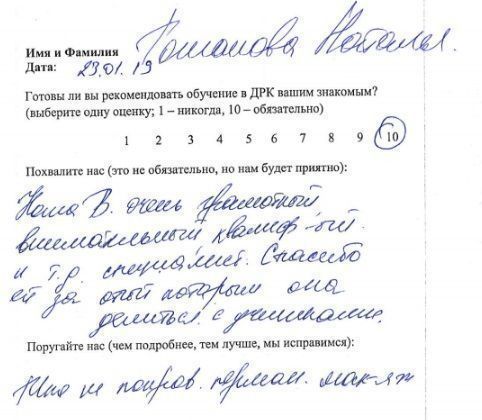 Имя и Фамилия Наталья.
Дата: 23.01.19
Готовы ли вы рекомендовать обучение в ДРК вашим знакомым?
(выберите одну оценку; 1 – никогда, 10 – обязательно)
1 2 3 4 5 6 7 8 9 10
Похвалите нас (это не обязательно, но нам будет приятно):
В. очень грамотный
внимательный квалиф-ый
и т.д. специалист. Спасибо
ей за опыт которым она
делиться с учениками.
Поругайте нас (чем подробнее, тем лучше, мы исправимся):
не понрав. перман. мак-яж